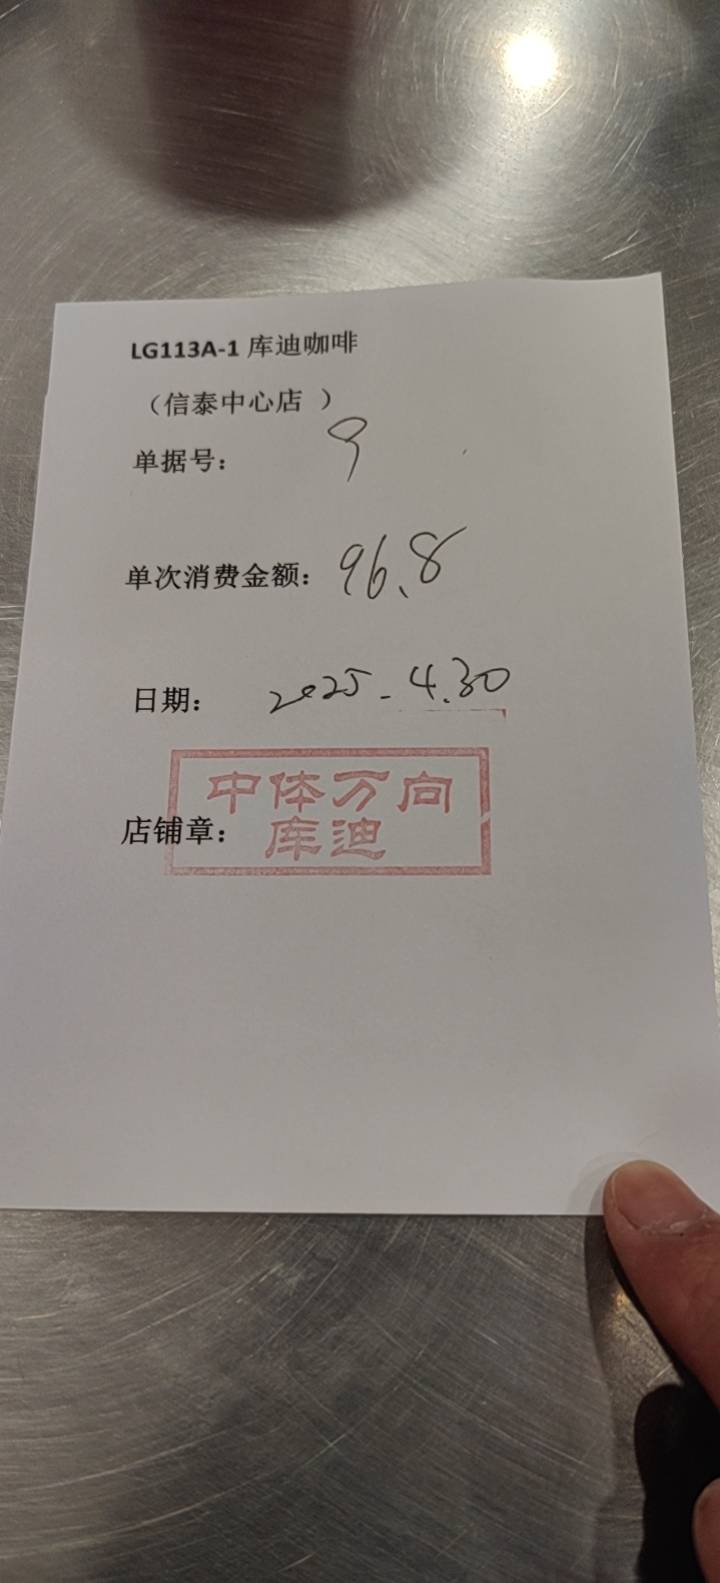 LG113A-1 库迪咖啡
（信泰中心店 ）
单据号： 9
单次消费金额： 96.8
日期： 2025-4.30
店铺章：
中体万向
库迪